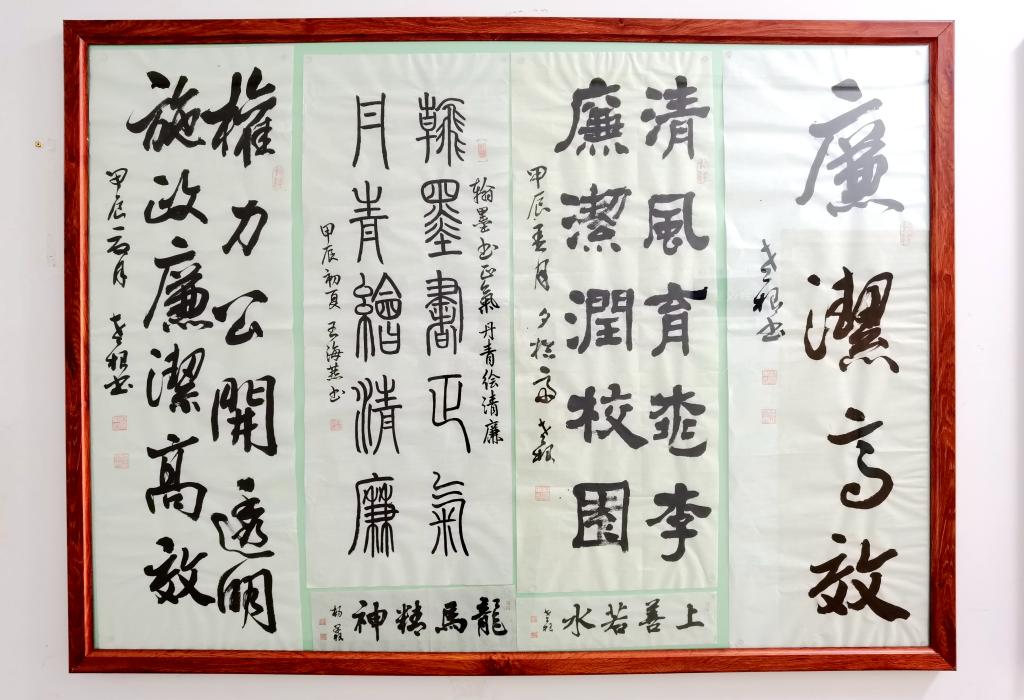 廉潔高效
老根书
清風育桃李
廉潔潤校園
甲辰春月夕拾斋老根
上善若水
老根
翰墨書正氣
丹青繪清廉
翰墨书正氣丹青绘清廉
甲辰初夏王海燕书
龍馬精神
權力公開透明
施政廉潔高效
甲辰二月老根书